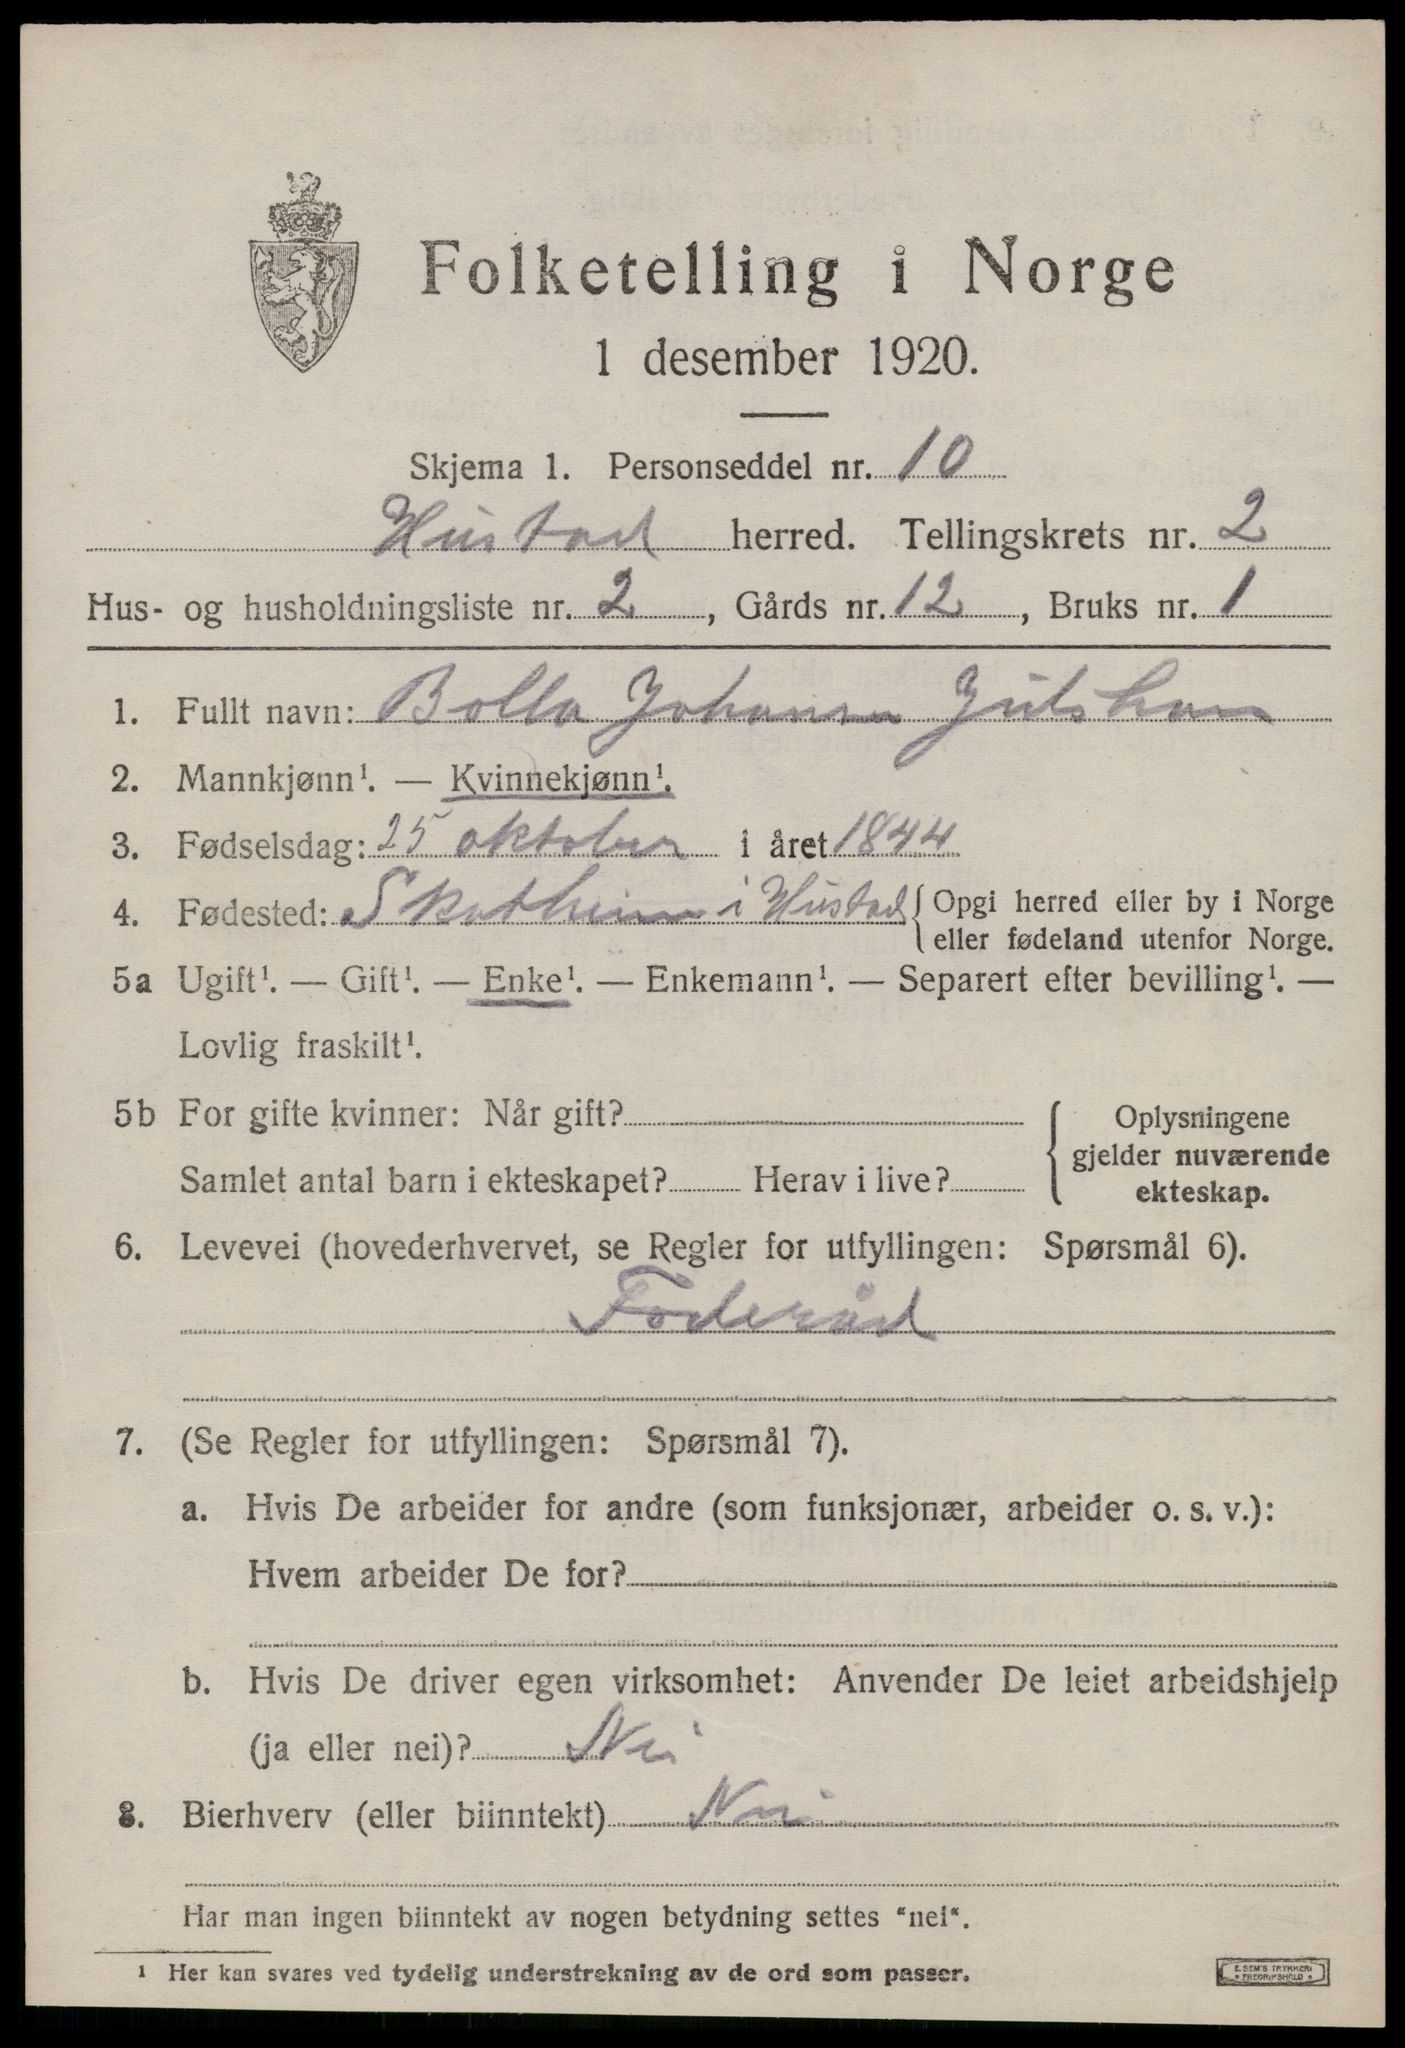 Folketelling i Norge
1 desember 1920.
Skjema 1. Personseddel nr. 10
Hustad herred. Tellingskrets nr. 2
Hus- og husholdningsliste nr. 2, Gårds nr. 12, Bruks nr. 1
1. Fullt navn: Johansen
2. Mannkjønn¹. — Kvinnekjønn¹.
3. Fødselsdag: 25 oktober i året 1844
4. Fødested: i Hustad { Opgi herred eller by i Norge
eller fødeland utenfor Norge.
5a Ugift¹. — Gift¹. — Enke¹. — Enkemann¹. — Separert efter bevilling¹. —
Lovlig fraskilt¹.
5b For gifte kvinner: Når gift? { Oplysningene
gjelder nuværende
Samlet antal barn i ekteskapet? Herav i live? ekteskap.
6. Levevei (hovederhvervet, se Regler for utfyllingen: Spørsmål 6).
Foderåd
7. (Se Regler for utfyllingen: Spørsmål 7).
a. Hvis De arbeider for andre (som funksjonær, arbeider o. s. v.):
Hvem arbeider De for?
b. Hvis De driver egen virksomhet: Anvender De leiet arbeidshjelp
(ja eller nei)? Nei
8. Bierhverv (eller biinntekt) Nei
Har man ingen biinntekt av nogen betydning settes “nei“.
¹ Her kan svares ved tydelig understrekning av de ord som passer.
E. SEM'S TRYKKERI
• FREDRIKSHALD •